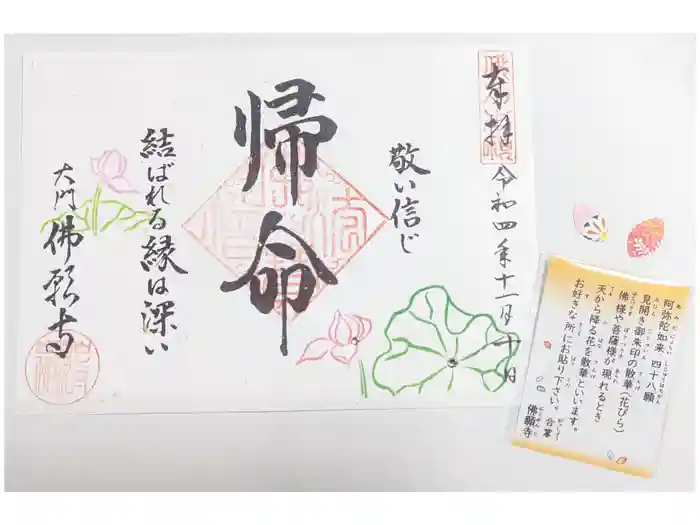 奉拝
令和四年十一月十一日
敬い信じ
帰命
結ばれる縁は深い
大門 佛願寺
阿弥陀如来 四十八願
見開き御朱印の散華(花びら)
佛様や菩薩様が現れるとき
天から降る花を散華といいます。
お好きな所にお貼り下さい。 合掌
佛願寺